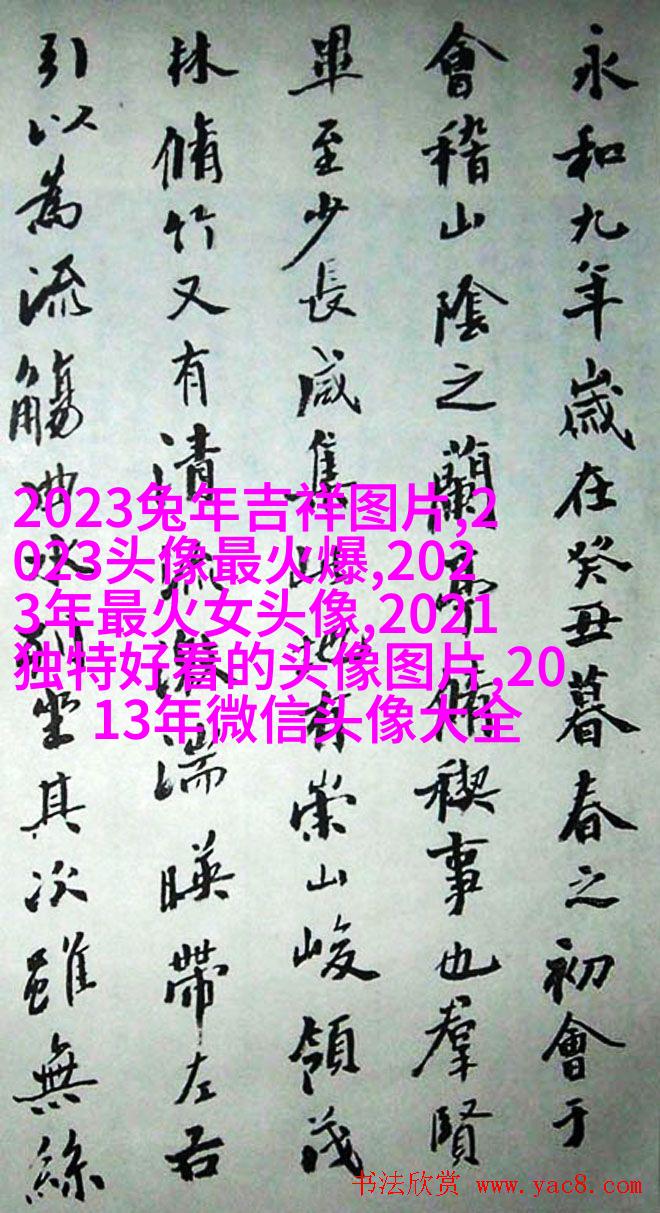 永和九年歲在癸丑暮春之初會于
會稽山陰之蘭亭脩禊事也羣賢
畢至少長咸集此地有崇山峻領茂
林脩竹又有清流激湍暎帶左右
引以為流觴曲水列坐其次雖無絲
2023兔年吉祥图片,2
023头像最火爆,202
3年最火女头像,2021
独特好看的头像图片,20
13年微信头像大全
书法欣赏 www.yac8.com